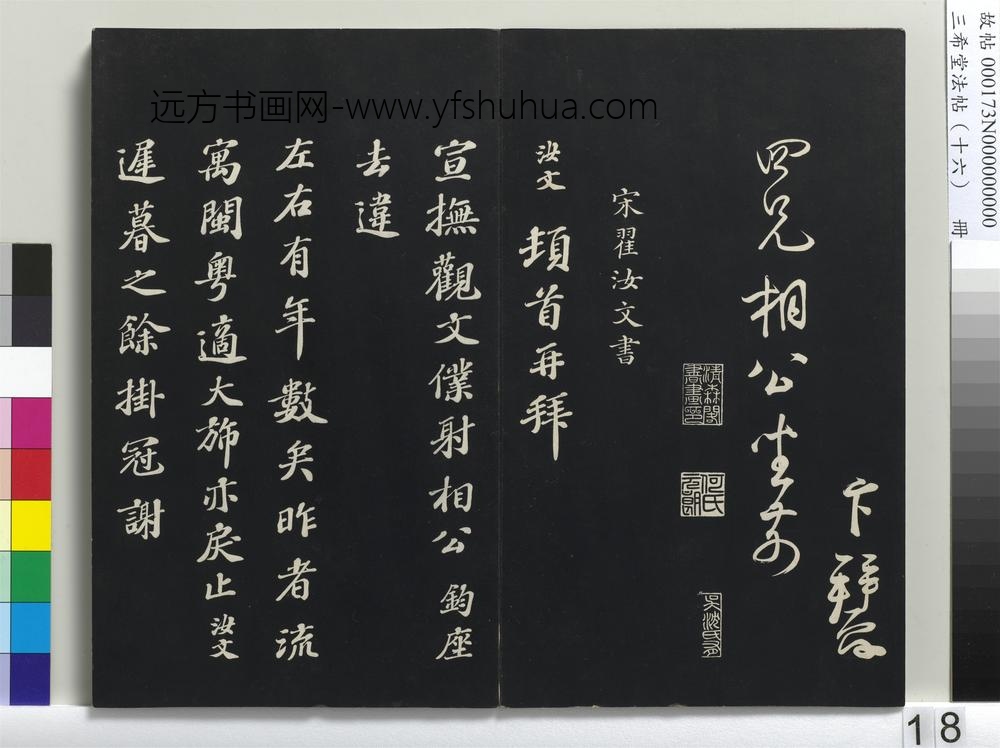 远方书画网-www.yfshuhua.com
故帖 000173N000000000
三希堂法帖（十六） 冊
卞拜
四兄相公坐前
清森閣書畫印
何氏元朗
宋翟汝文書
汝文頓首再拜
宣撫觀文僕射相公 鈞座
去違
左右有年數矣昨者流
寓閩粤適大斾亦戾止汝文
遲暮之餘掛冠謝
18